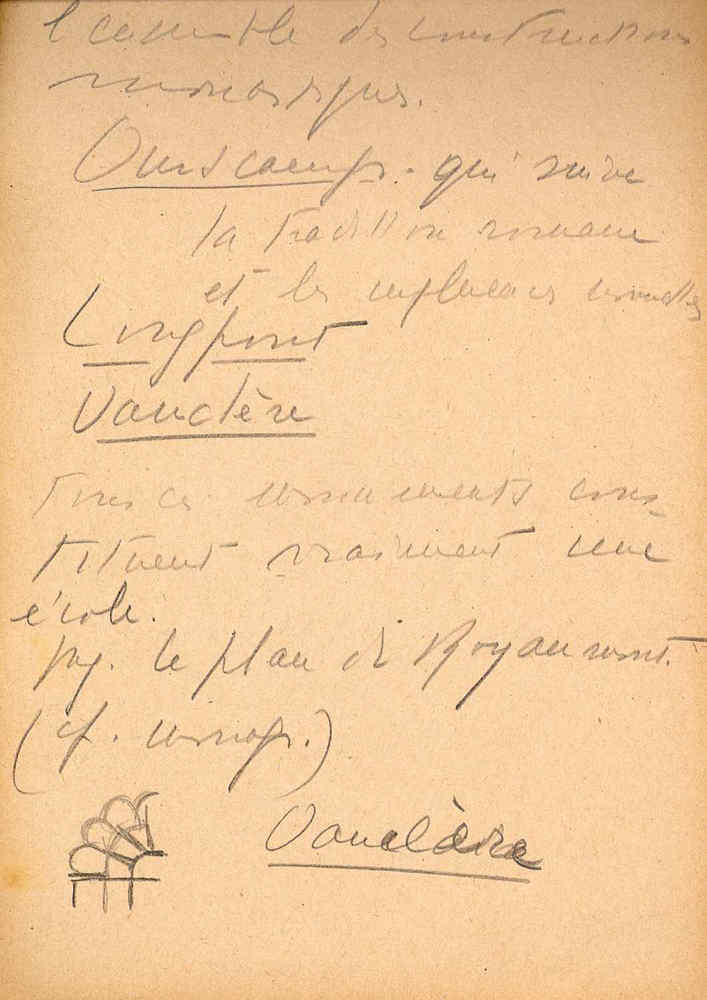 l'ensemble des constructions
monastiques.
Ourscamp. qui suive
la tradition romane
et les influences nouvelles
Longpont
Vauclère
Tous ces monuments cons-
tituent vraiment une
école.
le plan de Royaumont.
(cf. monogr.)
Vauclère